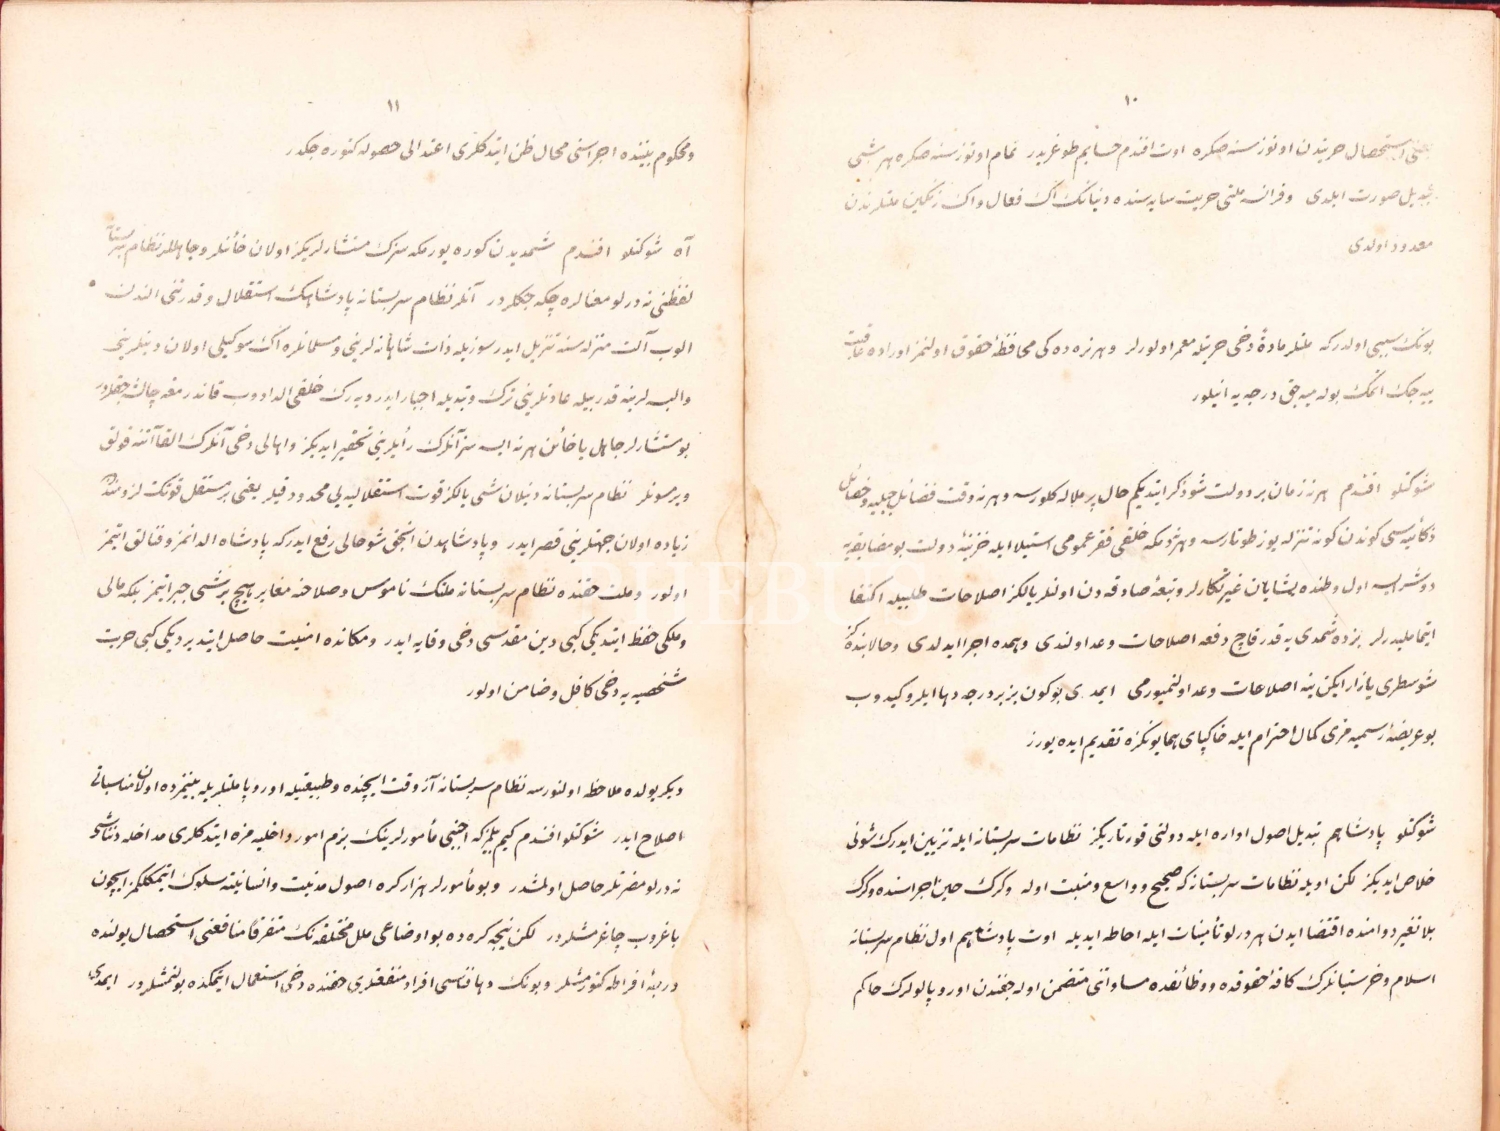 ١٠
استحصال حريتدن اوتوز سنه صكره اوت افندم حسابم طوغريدر تمام اوتوز سنه صكره هر شى
تبديل صورت ايلدى و فرانسه ملتى حريت سايه سنده دنيانك اك فعال و اك زنكين ملتلرندن
معدود اولدى
بونك سببى اولدركه ملتلر مادةً دخى حريتله معمر اولورلر و هر نره ده كى محافظۀ حقوق اولنمز اوراده عاقبت
ييه جك اتمك بوله ميه جق درجه يه اينيلور
شوكتلو افندم هر نه زمان بر دولت شو ذكر ايتديكم حال پر ملاله كلورسه و هر نه وقت فضائل جبليه و خصائل
ذكائيه سى كوندن كونه تنزله يوز طوتارسه و هر نره يكه خلقى فقر عمومى استيلا ايله خزينۀ دولت بو مضايقه يه
دوشرايسه اول وطنده يشايان غيرتكارلر و تبعۀ صادقه دن اولنلر يالكز اصلاحات طلبيله اكتفا
ايتمامليدرلر بزده شمدى يه قدر قاچ دفعه اصلاحات وعد اولندى و همده اجرا ايدلدى و حالا بنده كز
شو سطرى يازار ايكن ينه اصلاحات وعد اولنميورمى ايمدى بو كون بز بر درجه دها ايلرو كيدوب
بو عريضۀ رسميه مزى كمال احترام ايله خاكپاى همايونكزه تقديم ايده يورز
شوكتلو پادشاهم تبديل اصول اداره ايله دولتى قورتاريكز نظامات سربستانه ايله تزيين ايدرك شونى
خلاص ايديكز لكن اويله نظامات سربستانه كه صحيح و واسع و منبت اوله و كرك حين اجراسنده و كرك
بلا تغير دوامنده اقتضا ايدن هر درلو تأمينات ايله احاطه ايديله اوت پادشاهم اول نظام سربستانه
اسلام و خرستيانلرك كافۀ حقوقده و وظائفده مساواتنى متضمن اوله جغندن اوروپالولرك حاكم
١١
و محكوم بيننده اجراسنى محال ظن ايتدكلرى اعتدالى حصوله كتوره جكدر
آه شوكتلو افندم شمديدن كوره يورمكه سزك مستشارلريكز اولان خائنلر و جاهللر نظام سربستانه
لفظنى نه درلو معنالره چكه جكلردر آنلر نظام سربستانه پادشاهك استقلال و قدرتنى الندن
الوب آلت منزله سنه تنزيل ايدر سوزيله ذات شاهانه لرينى و مسلمانلره اك سوكيلى اولان دينلرينى
و البسه لرينه قدر بيله عادتلرينى ترك و تبديله اجبار ايدر ديه رك خلقى الدادوب قاندرمغه چالشه جقلردر
بو مستشارلر جاهل يا خائن هر نه ايسه سز آنلرك رأيلرينى تحقير ايديكز و اهالى دخى آنلرك القاآتنه قولق
ويرمسونلر نظام سربستانه دينلان شى يالكز قوت استقلاليه يى محدود قيلر يعنى بر مستقل قوتك لزومندن
زياده اولان جهتلرينى قصر ايدر و پادشاهدن انجق شو حالى رفع ايدركه پادشاه الدانمز و فنالق ايتمز
اولور و ملت حقنده نظام سربستانه ملتك ناموس و صلاحنه مغاير هيچ بر شئى جبر ايتمز بلكه مالى
و ملكى حفظ ايتديكى كبى دين مقدسى دخى وقايه ايدر و مكانده امنيت حاصل ايتديرديكى كبى حريت
شخصيه يه دخى كافل و ضامن اولور
ديكر يولده ملاحظه اولنورسه نظام سربستانه آز وقت ايچنده و طبيعتيله اوروپا ملتلريله بينمزده اولان مناسباتى
اصلاح ايدر شوكتلو افندم كيم بيلمز كه اجنبى مأمورلرينك بزم امور داخليه مزه ايتدكلرى مداخله دن ناشى
نه درلو مضرتلر حاصل اولمشدر و بو مأمورلر هزار كره اصول مدنيت و انسانيته سلوك ايتمكلكمز ايچون
باغروب چاغرمشلردر لكن نيجه كره ده بو اوضاعى ملل مختلفه نك متفرقاً منافعنى استحصال يولنده
درجۀ افراطه كتورمشلر و بونك دها فناسى افراد منفعتلرى حقنده دخى استعمال ايتمكده بولنمشلردر ايمدى